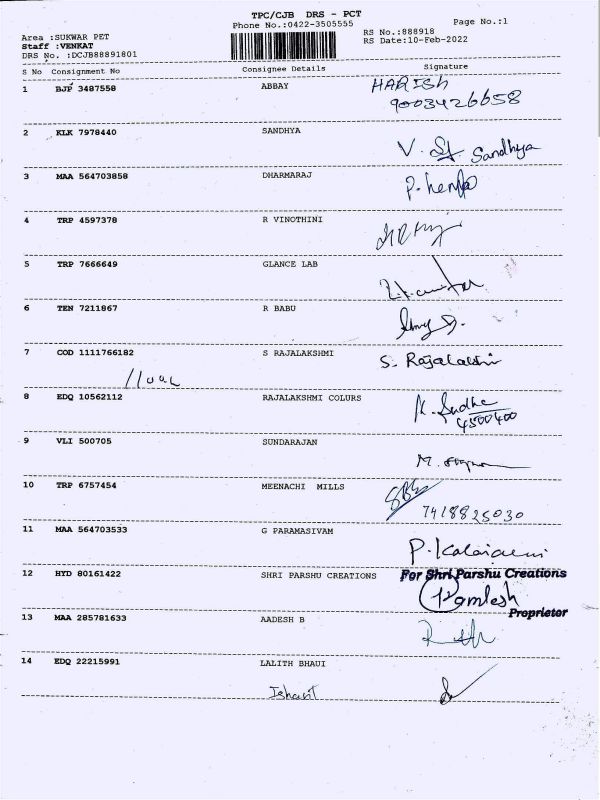 TPC/CJB DRS - PCT
Phone No.:0422-3505555 Page No.:1
Area :SUKWAR PET RS No.:888918
Staff :VENKAT RS Date:10-Feb-2022
DRS No. :DCJB88891801
S No Consignment No Consignee Details Signature
1 BJP 3487558 ABBAY HARISH
9003426658
2 KLK 7978440 SANDHYA V. Sandhya
3 MAA 564703858 DHARMARAJ
4 TRP 4597378 R VINOTHINI
5 TRP 7666649 GLANCE LAB
6 TEN 7211867 R BABU
7 COD 1111766182 S RAJALAKSHMI S. Rajalakshi
8 EDQ 10562112 RAJALAKSHMI COLURS K. Sudha
4500400
9 VLI 500705 SUNDARAJAN
10 TRP 6757454 MEENACHI MILLS
7418825030
11 MAA 564703533 G PARAMASIVAM
12 HYD 80161422 SHRI PARSHU CREATIONS For Shri Parshu Creations
Kamlesh
Proprietor
13 MAA 285781633 AADESH B
14 EDQ 22215991 LALITH BHAUI